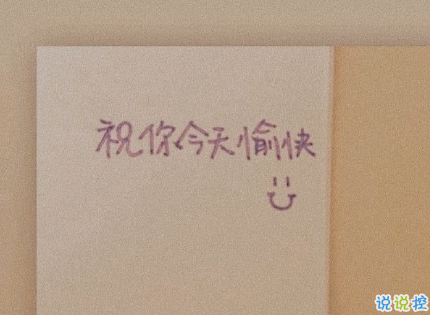 祝你今天愉快
说说控